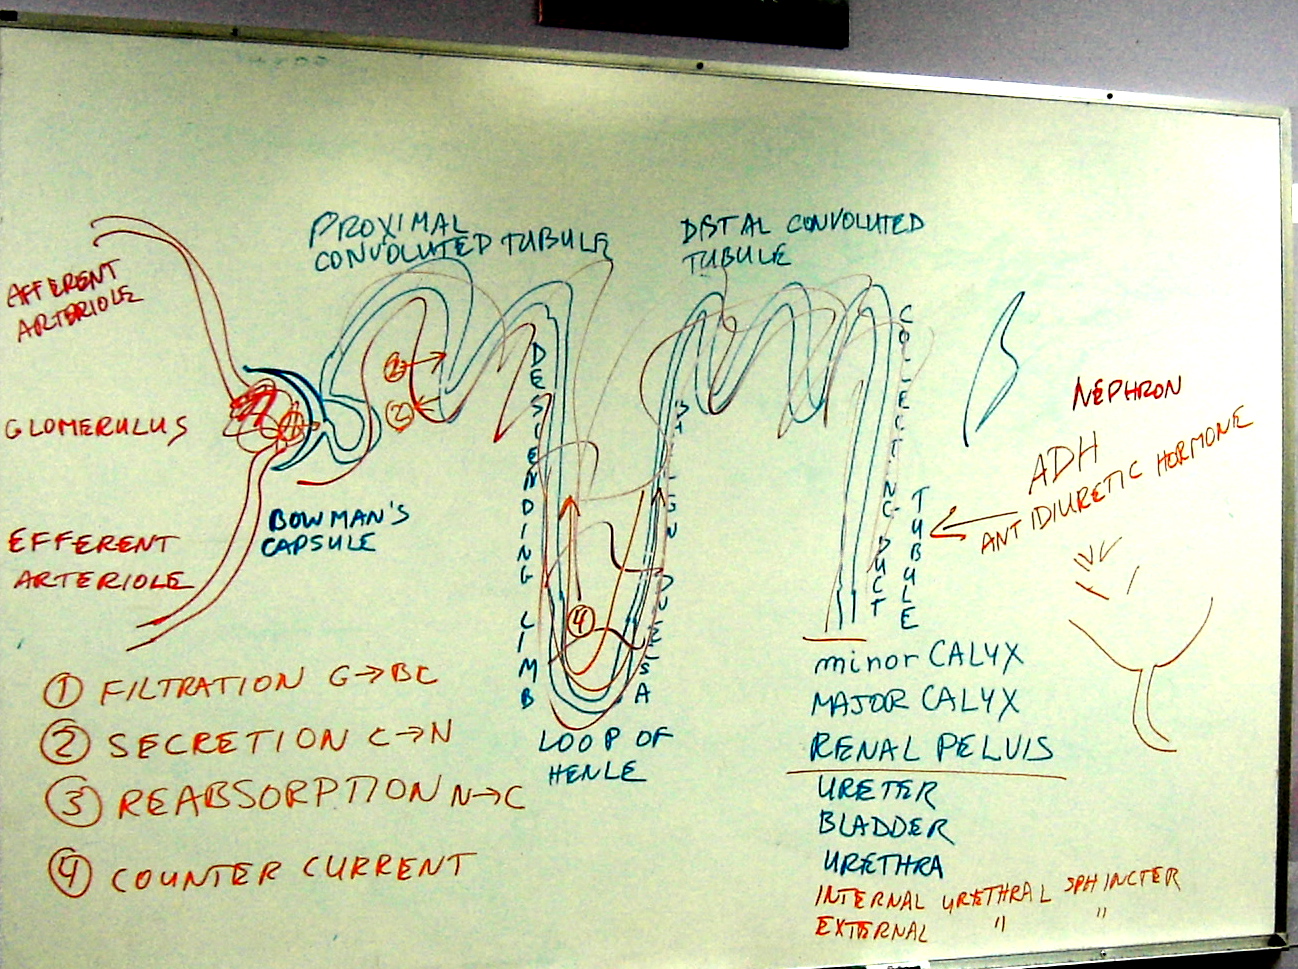 PROXIMAL
CONVOLUTED TUBULE
DISTAL CONVOLUTED
TUBULE
AFFERENT
ARTERIOLE
GLOMERULUS
EFFERENT
ARTERIOLE
BOWMAN'S
CAPSULE
DESCENDING LIMB
LOOP OF
HENLE
COLLECTING DUCT
TUBULE
NEPHRON
ADH
ANTIDIURETIC HORMONE
1
2
2
4
① FILTRATION G→BC
② SECRETION C→N
③ REABSORPTION N→C
④ COUNTER CURRENT
minor CALYX
MAJOR CALYX
RENAL PELVIS
URETER
BLADDER
URETHRA
INTERNAL URETHRAL SPHINCTER
EXTERNAL " "